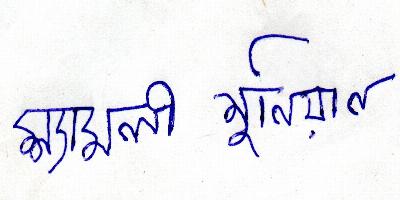 শ্যামলী মুনিয়ান